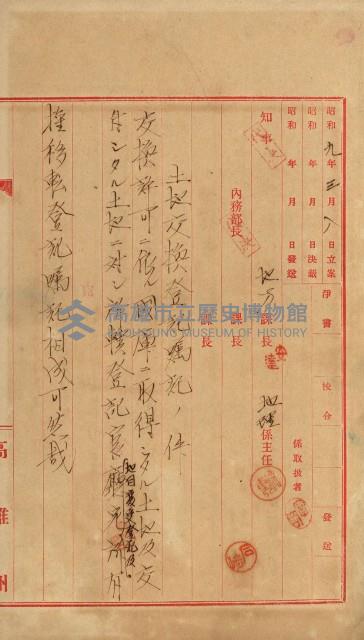 昭和九年三月八日立案
昭和 年 月 日決裁
昭和 年 月 日發送
淨書
校合
發送
係取扱者
知事
內務部長
地方課長
課長
課長
地理係主任
土地交換登記囑託ノ件
交換許可ニ依リ國庫ニ取得シタル土地及交
付シタル土地ニ対シ
地目変更登記及
權移転登記囑託相成可然哉
高雄州
高雄市立歷史博物館
KAOHSIUNG MUSEUM OF HISTORY